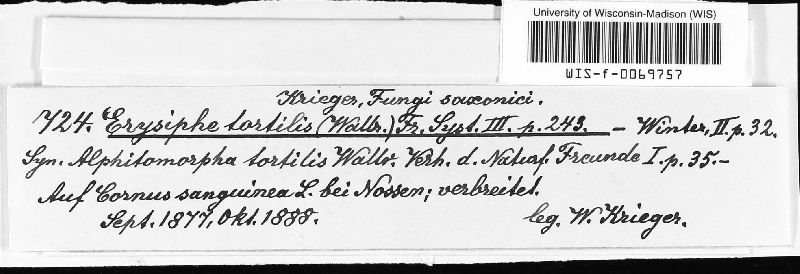 University of Wisconsin-Madison (WIS)
WIS-f-0069757
Krieger, Fungi saxonici.
724. Erysiphe tortilis (Wallr.) Fr. Syst. III. p. 243. – Winter, II. p. 32.
Syn. Alphitomorpha tortilis Wallr. Verh. d. Naturf. Freunde I. p. 35. –
Auf Cornus sanguinea L. bei Nossen; verbreitet.
Sept. 1877, Okt. 1888.
leg. W. Krieger.